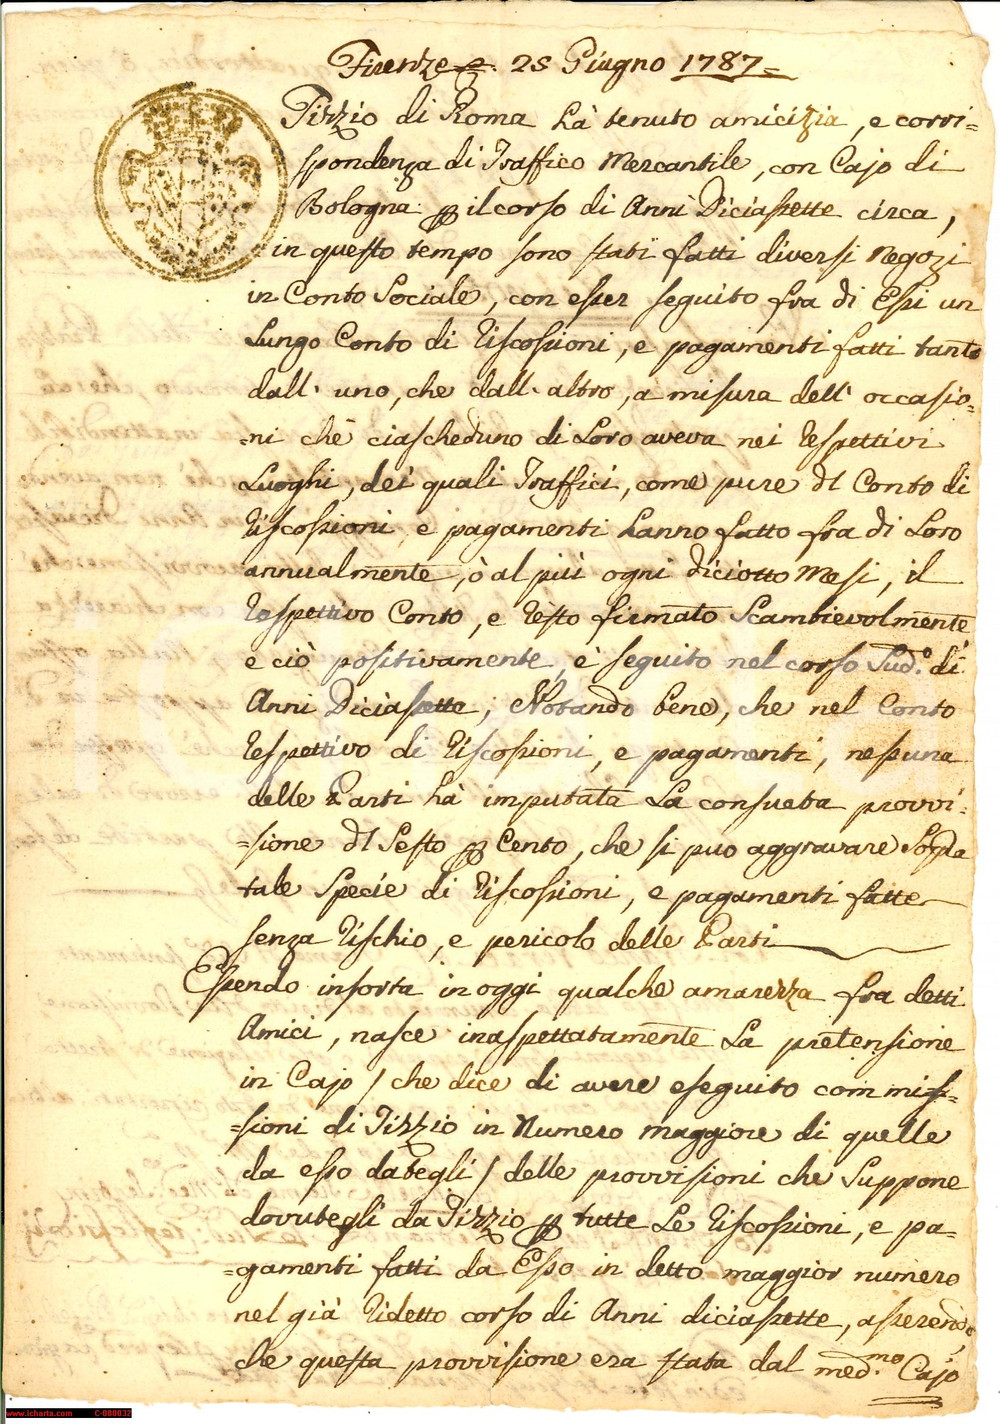 Firenze 25 Giugno 1787=
Tizzio di Roma hà tenuto amicizia, e corri=
spondenza di Traffico Mercantile, con Cajo di
Bologna p il corso di Anni Diciasette circa,
in questo tempo sono stati fatti diversi Negozi
in Conto Sociale, con esser seguito fra di Essi un
Lungo Conto di Riscossioni, e pagamenti fatti tanto
dall' uno, che dall' altro, a misura dell' occasio=
=ni che ciascheduno di Loro aveva nei respettivi
Luoghi, dei quali Traffici, come pure dl Conto di
Riscossioni, e pagamenti hanno fatto fra di Loro
annualmente, ò al più ogni diciotto Mesi, il
respettivo Conto, e resto firmato Scambievolmente
e ciò positivamente, è seguito nel corso Sud.º di
Anni Diciasette, Notando bene, che nel Conto
respettivo di Riscossioni, e pagamenti, nessuna
delle Parti hà imputata La consueta provvi=
=sione dl Sesto p Cento, che si può aggravare Sopra
tale Specie di Riscossioni, e pagamenti fatte
senza Rischio, e pericolo delle Parti
Essendo insorta in oggi qualche amarezza fra detti
Amici, nasce inaspettatamente La pretensione
in Cajo / che dice di avere eseguito commis=
=sioni di Tizzio in Numero maggiore di quelle
da esso dategli / delle provvisioni che Suppone
dovutegli da Tizzio p tutte Le Riscossioni, e pa=
=gamenti fatti da Esso in detto maggior numero
nel già ridetto corso di Anni diciasette, asserendo,
che questa provvisione era stata dal med.mo Cajo
www.icharta.com C-080032